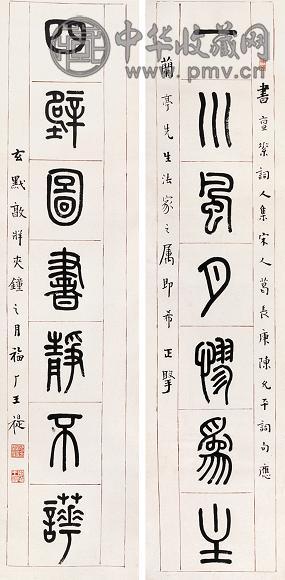 中华收藏网
www.pmv.cn
書詞人集宋人葛長庚陳允平詞句應
蘭亭先生法家之属即希正
一川風月爲主
四壁圖書靜不譁
玄黓敦牂夾鐘之月福厂王禔